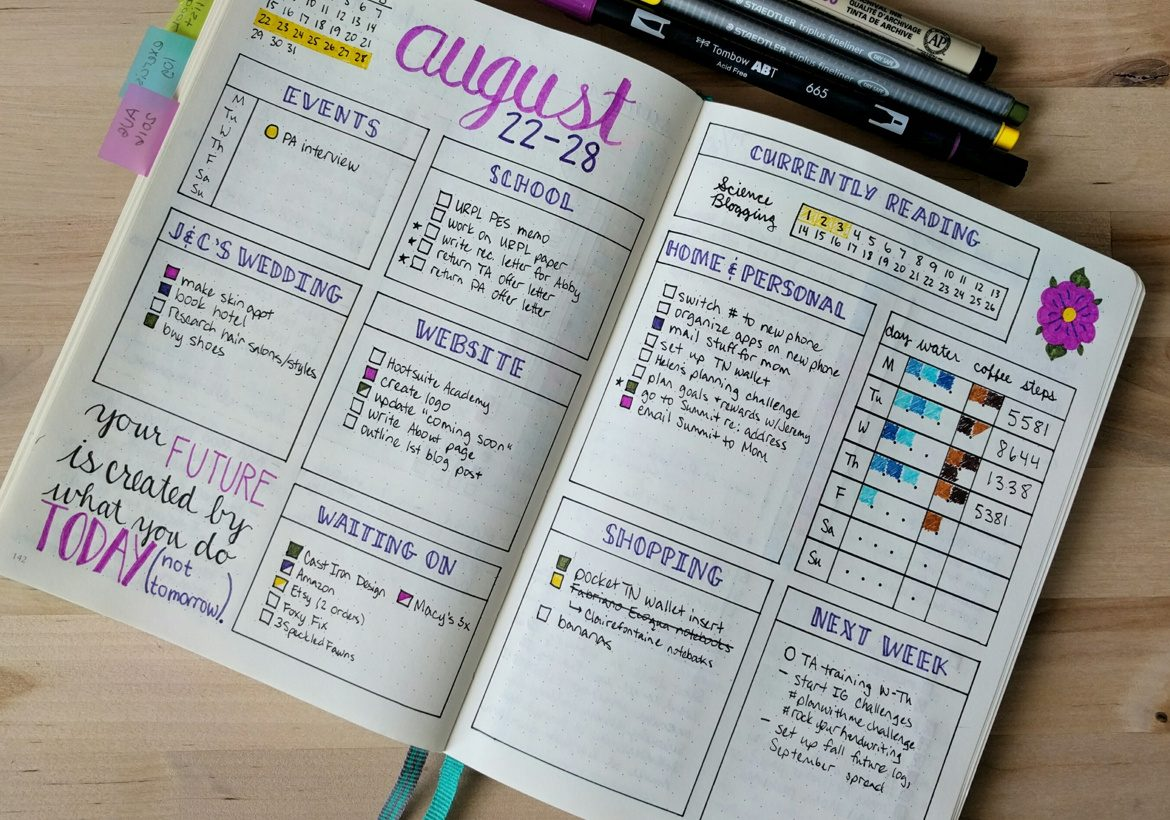 15 16 17 18 19 20 21
22 23 24 25 26 27 28
29 30 31
august
22-28
EVENTS
M
Tu
W
Th
F
Sa
Su
PA interview
SCHOOL
URPL PES memo
work on URPL paper
write rec. letter for Abby
return TA offer letter
return PA offer letter
J&C'S WEDDING
make skin appt
book hotel
research hair salons/styles
buy shoes
WEBSITE
Hootsuite Academy
create logo
update "coming soon"
write About page
outline 1st blog post
your FUTURE
is created by
what you do
TODAY (not
tomorrow!)
142
WAITING ON
Cast Iron Design
Amazon
Macy's 5x
Etsy (2 orders)
Foxy Fix
3 Speckled Fawns
CURRENTLY READING
Science
Blogging
1 2 3 4 5 6 7 8 9 10 11 12 13
14 15 16 17 18 19 20 21 22 23 24 25 26
HOME & PERSONAL
switch # to new phone
organize apps on new phone
mail stuff for mom
set up TN wallet
Helen's planning challenge
plan goals + rewards w/Jeremy
go to Summit re: address
email Summit to Mom
day water coffee steps
M 5581
Tu 8644
W 1338
Th 5381
F
Sa
Su
SHOPPING
pocket TN wallet insert
Fabriano Ecoqua notebooks
↳ Clairefontaine notebooks
bananas
NEXT WEEK
O TA training W-Th
- start IG challenges
#planwithmechallenge
#rockyourhandwriting
- set up fall future log,
September spread
STAEDTLER triplus fineliner DRY SAFE
STAEDTLER triplus fineliner DRY SAFE
Tombow ABT
Acid Free
665
QUALITÉ D'ARCHIVAGE
TINTA DE ARCHIVE
AP